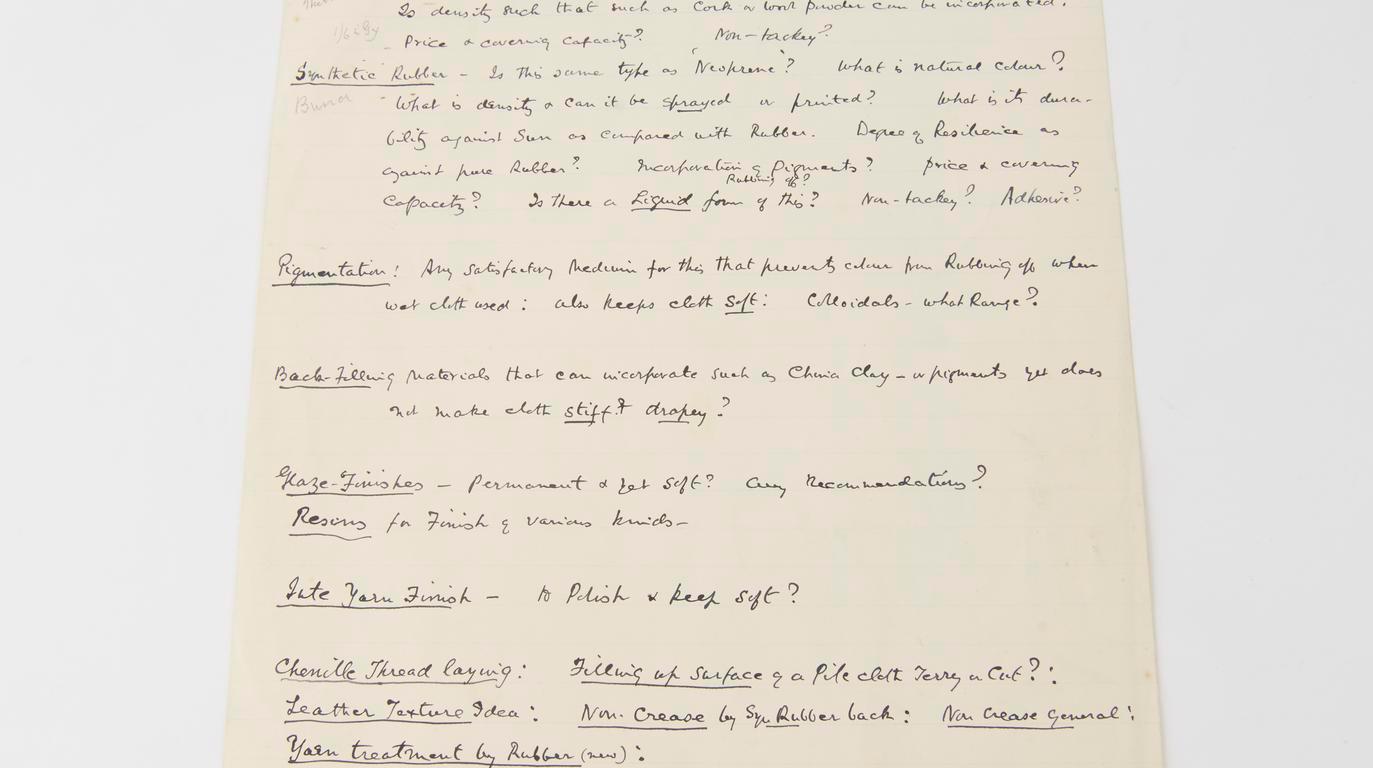 Is density such that such as Cork or wool powder can be incorporated.
1/6 lb
- Price & covering capacity? Non-tackey?
Synthetic Rubber - Is this same type as 'Neoprene'? What is natural colour?
Buna - What is density & can it be sprayed or printed? What is its dura-
bility against Sun as compared with Rubber. Degree of Resilience as
against pure Rubber? Incorporation of Pigments? Price & covering
Rubbing off?
Capacity? Is there a Liquid form of this? Non-tackey? Adhesive?
Pigmentation! Any satisfactory Medium for this that prevents colour from Rubbing off when
wet cloth used: also keeps cloth Soft: Colloidals - what Range?
Back-Filling Materials that can incorporate such as China Clay - or pigments yet does
not make cloth stiff? drapey?
Glaze-Finishes - Permanent & yet Soft? Any Recommendations?
Resins for Finish of various kinds-
Jute Yarn Finish - to Polish & keep soft?
Chenille Thread laying: Filling up surface of a Pile cloth Terry or Cut?:
Leather Texture Idea: Non-Crease by Syn Rubber back: Non Crease general:
Yarn treatment by Rubber (new):